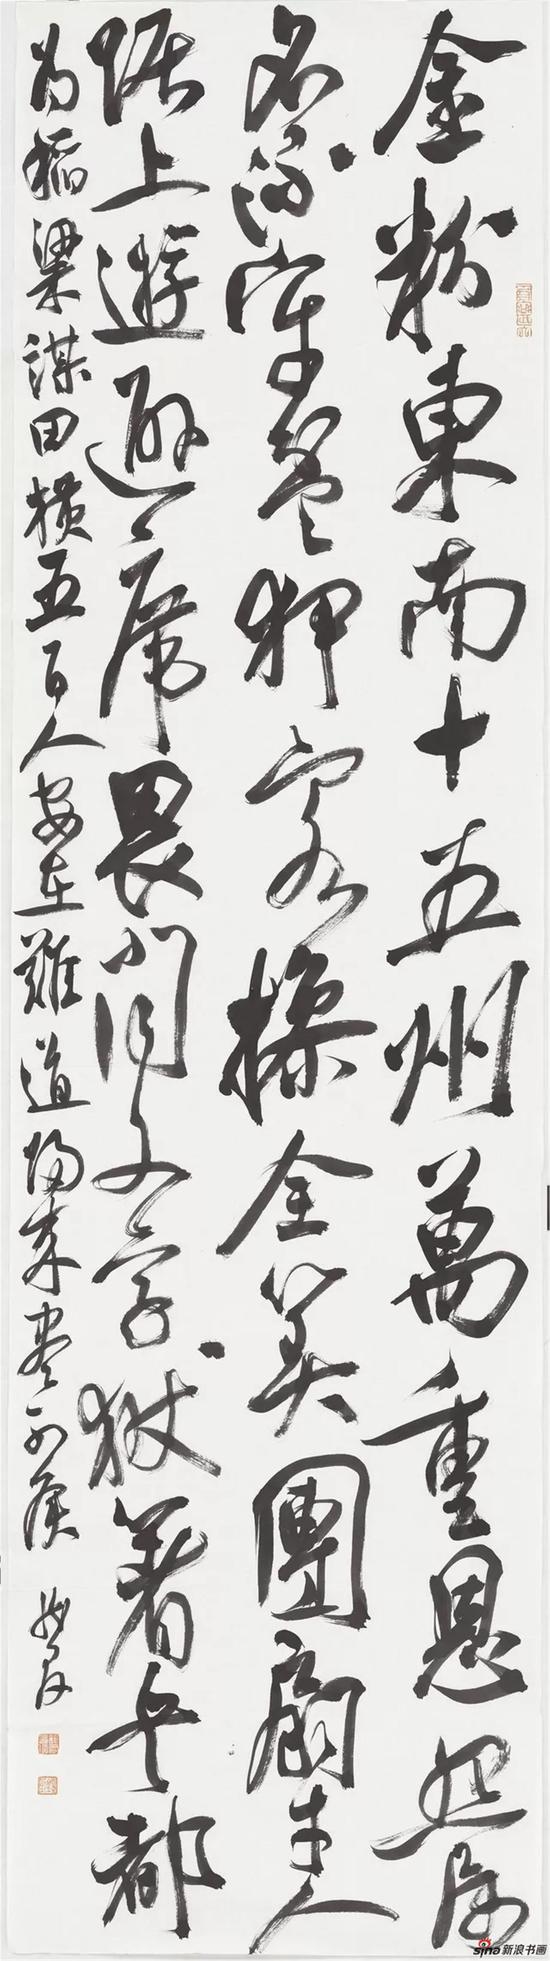 金粉東南十五州萬重恩怨属
名流牢盆狎客操全算團扇才人
踞上遊避席畏聞文字狱著書都
为稻梁謀田横五百人安在難道歸来盡列侯
sina新浪书画